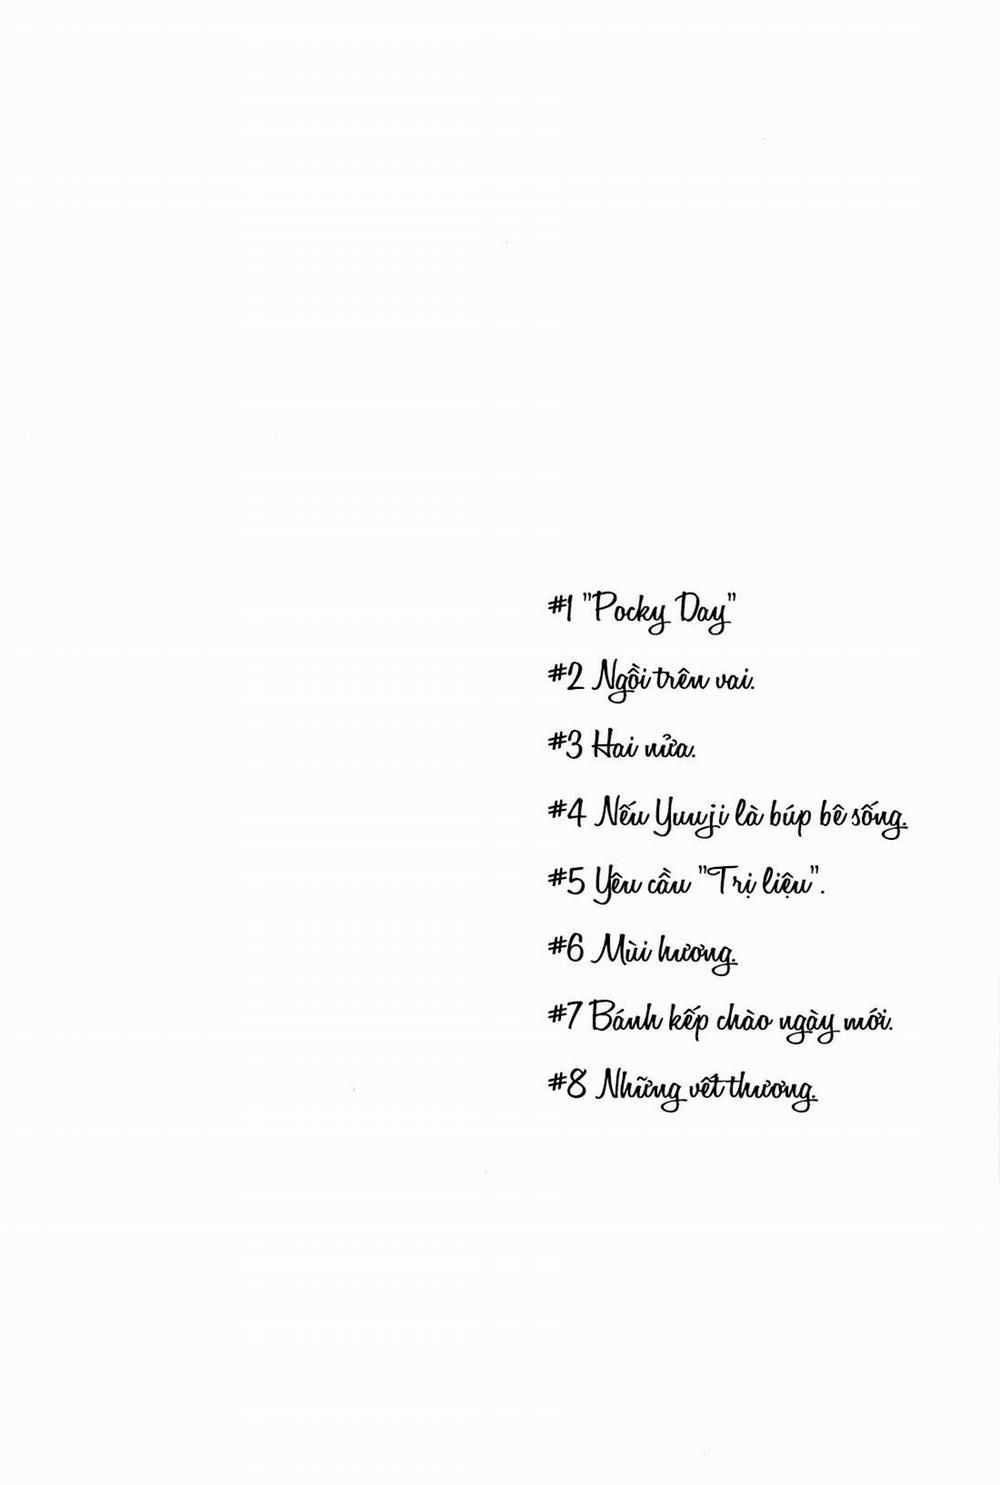 #1 "Pocky Day"
#2 Ngồi trên vai.
#3 Hai nửa.
#4 Nếu Yuuji là búp bê sống.
#5 Yêu cầu "Trị liệu".
#6 Mùi hương.
#7 Bánh kếp chào ngày mới.
#8 Những vết thương.